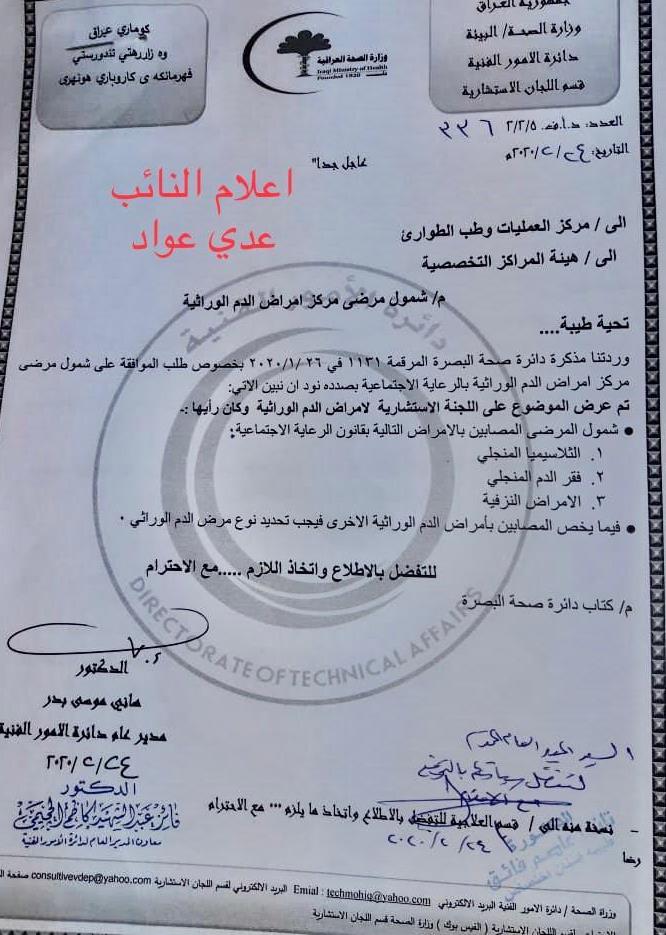 جمهورية العراق
وزارة الصحة/ البيئة
دائرة الامور الفنية
قسم اللجان الاستشارية
كوماري عيراق
وه زارهتي تندورستي
فهرمانكه ى كاروباري هونهرى
وزارة الصحة العراقية
Iraqi Ministry of Health
Founded 1920
العدد: د.ا.ف. ٢/٢/٥ ٣٣٦
التاريخ: ٢٠٢٠/٢/٢٤م
عاجل جدا"
اعلام النائب
عدي عواد
الى / مركز العمليات وطب الطوارئ
الى / هيئة المراكز التخصصية
م/ شمول مرضى مركز امراض الدم الوراثية
تحية طيبة....
وردتنا مذكرة دائرة صحة البصرة المرقمة ١١٣١ في ٢٠٢٠/١/٢٦ بخصوص طلب الموافقة على شمول مرضى
مركز امراض الدم الوراثية بالرعاية الاجتماعية بصدده نود ان نبين الاتي:
تم عرض الموضوع على اللجنة الاستشارية لامراض الدم الوراثية وكان رأيها :-
● شمول المرضى المصابين بالامراض التالية بقانون الرعاية الاجتماعية:
١. الثلاسيميا المنجلي
٢. فقر الدم المنجلي
٣. الامراض النزفية
● فيما يخص المصابين بأمراض الدم الوراثية الاخرى فيجب تحديد نوع مرض الدم الوراثي .
للتفضل بالاطلاع واتخاذ اللازم .....مع الاحترام
م/ كتاب دائرة صحة البصرة
دائرة الأمور الفنية
DIRECTORATE OF TECHNICAL AFFAIRS
الدكتور
هاني موسى بدر
مدير عام دائرة الامور الفنية
٢٠٢٠/٢/٢٤
الدكتور
فائز عبد الشهيد كاظم
معاون المدير العام لدائرة الأمور الفنية
السيد المدير العام
نسخة منه الى / قسم العلاجية للتفضل بالاطلاع واتخاذ ما يلزم ... مع الاحترام
٢٠٢٠/٢/٢٤
رضا
وزراة الصحة / دائرة الامور الفنية البريد الالكتروني Emial : techmohiq@yahoo.com البريد الالكتروني لقسم اللجان الاستشارية consultivevdep@yahoo.com
لقسم اللجان الاستشارية ( الفيس بوك ) وزارة الصحة قسم اللجان الاستشارية